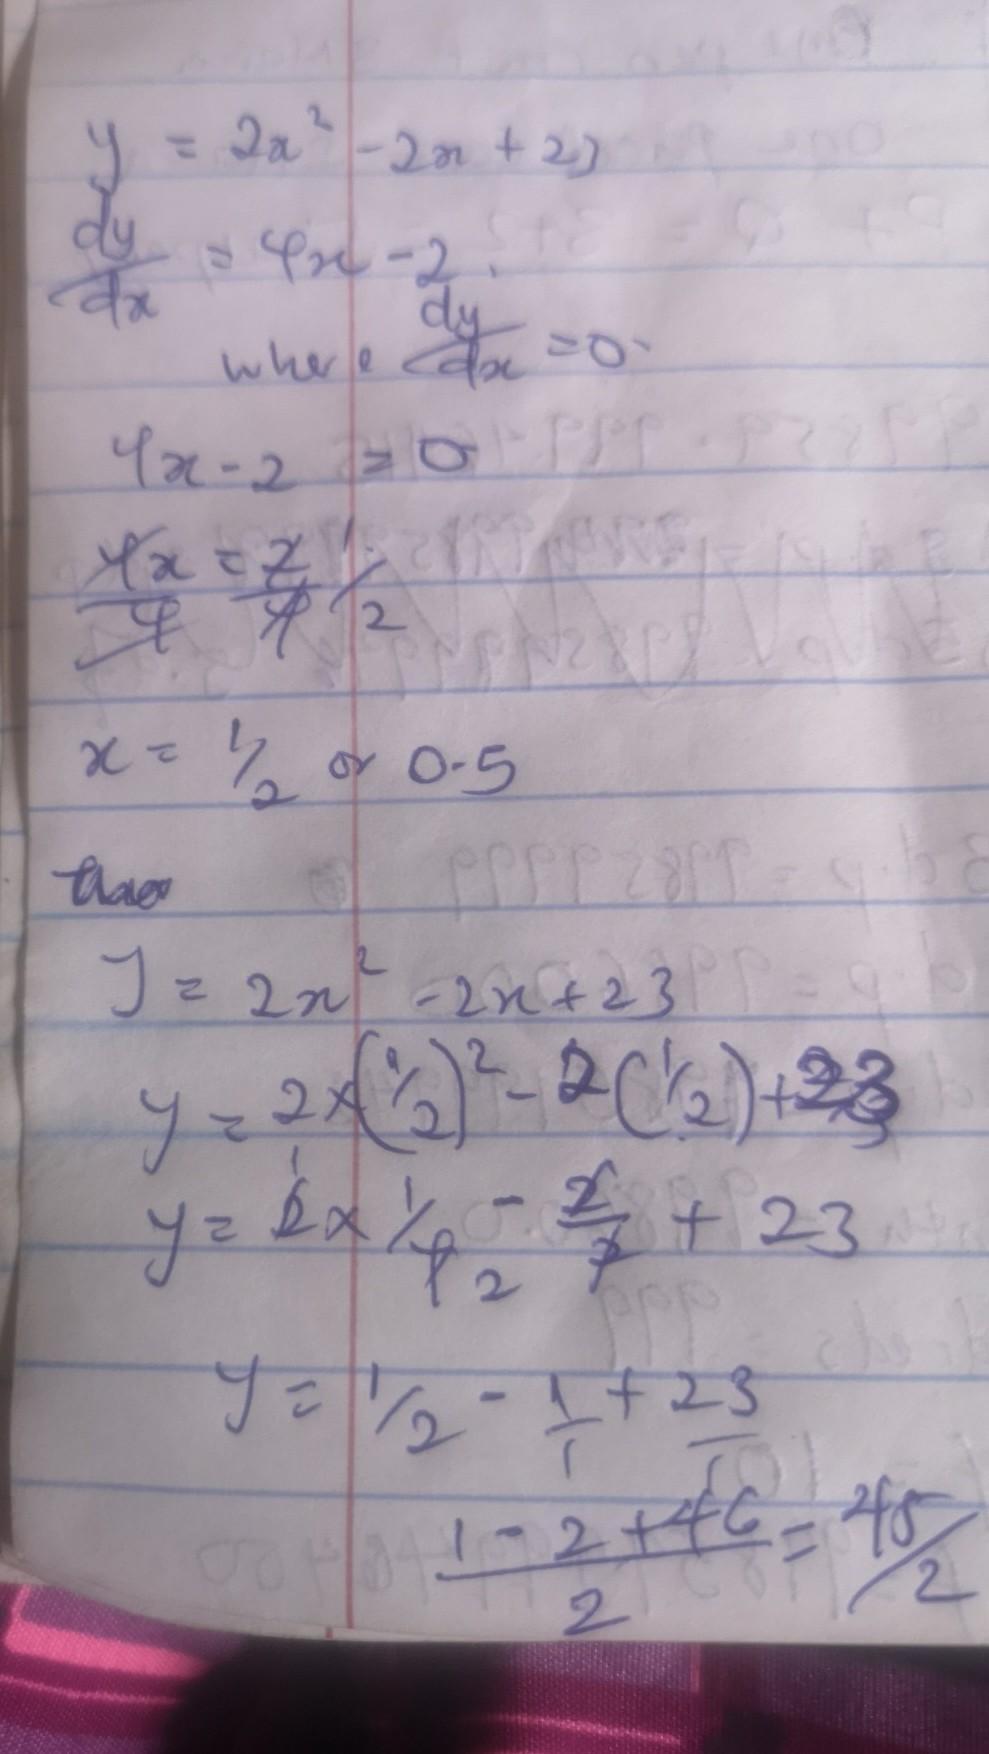 y = 2x² - 2x + 23
dy/dx = 4x - 2.
where dy/dx = 0.
4x - 2 = 0
4x/4 = 2/4 1/2
x = 1/2 or 0.5
y = 2x² - 2x + 23
y = 2 x (1/2)² - 2(1/2) + 23
y = 2 1 x 1/4 2 - 2/2 + 23
y = 1/2 - 1/1 + 23/1
1 - 2 + 46/2 = 45/2